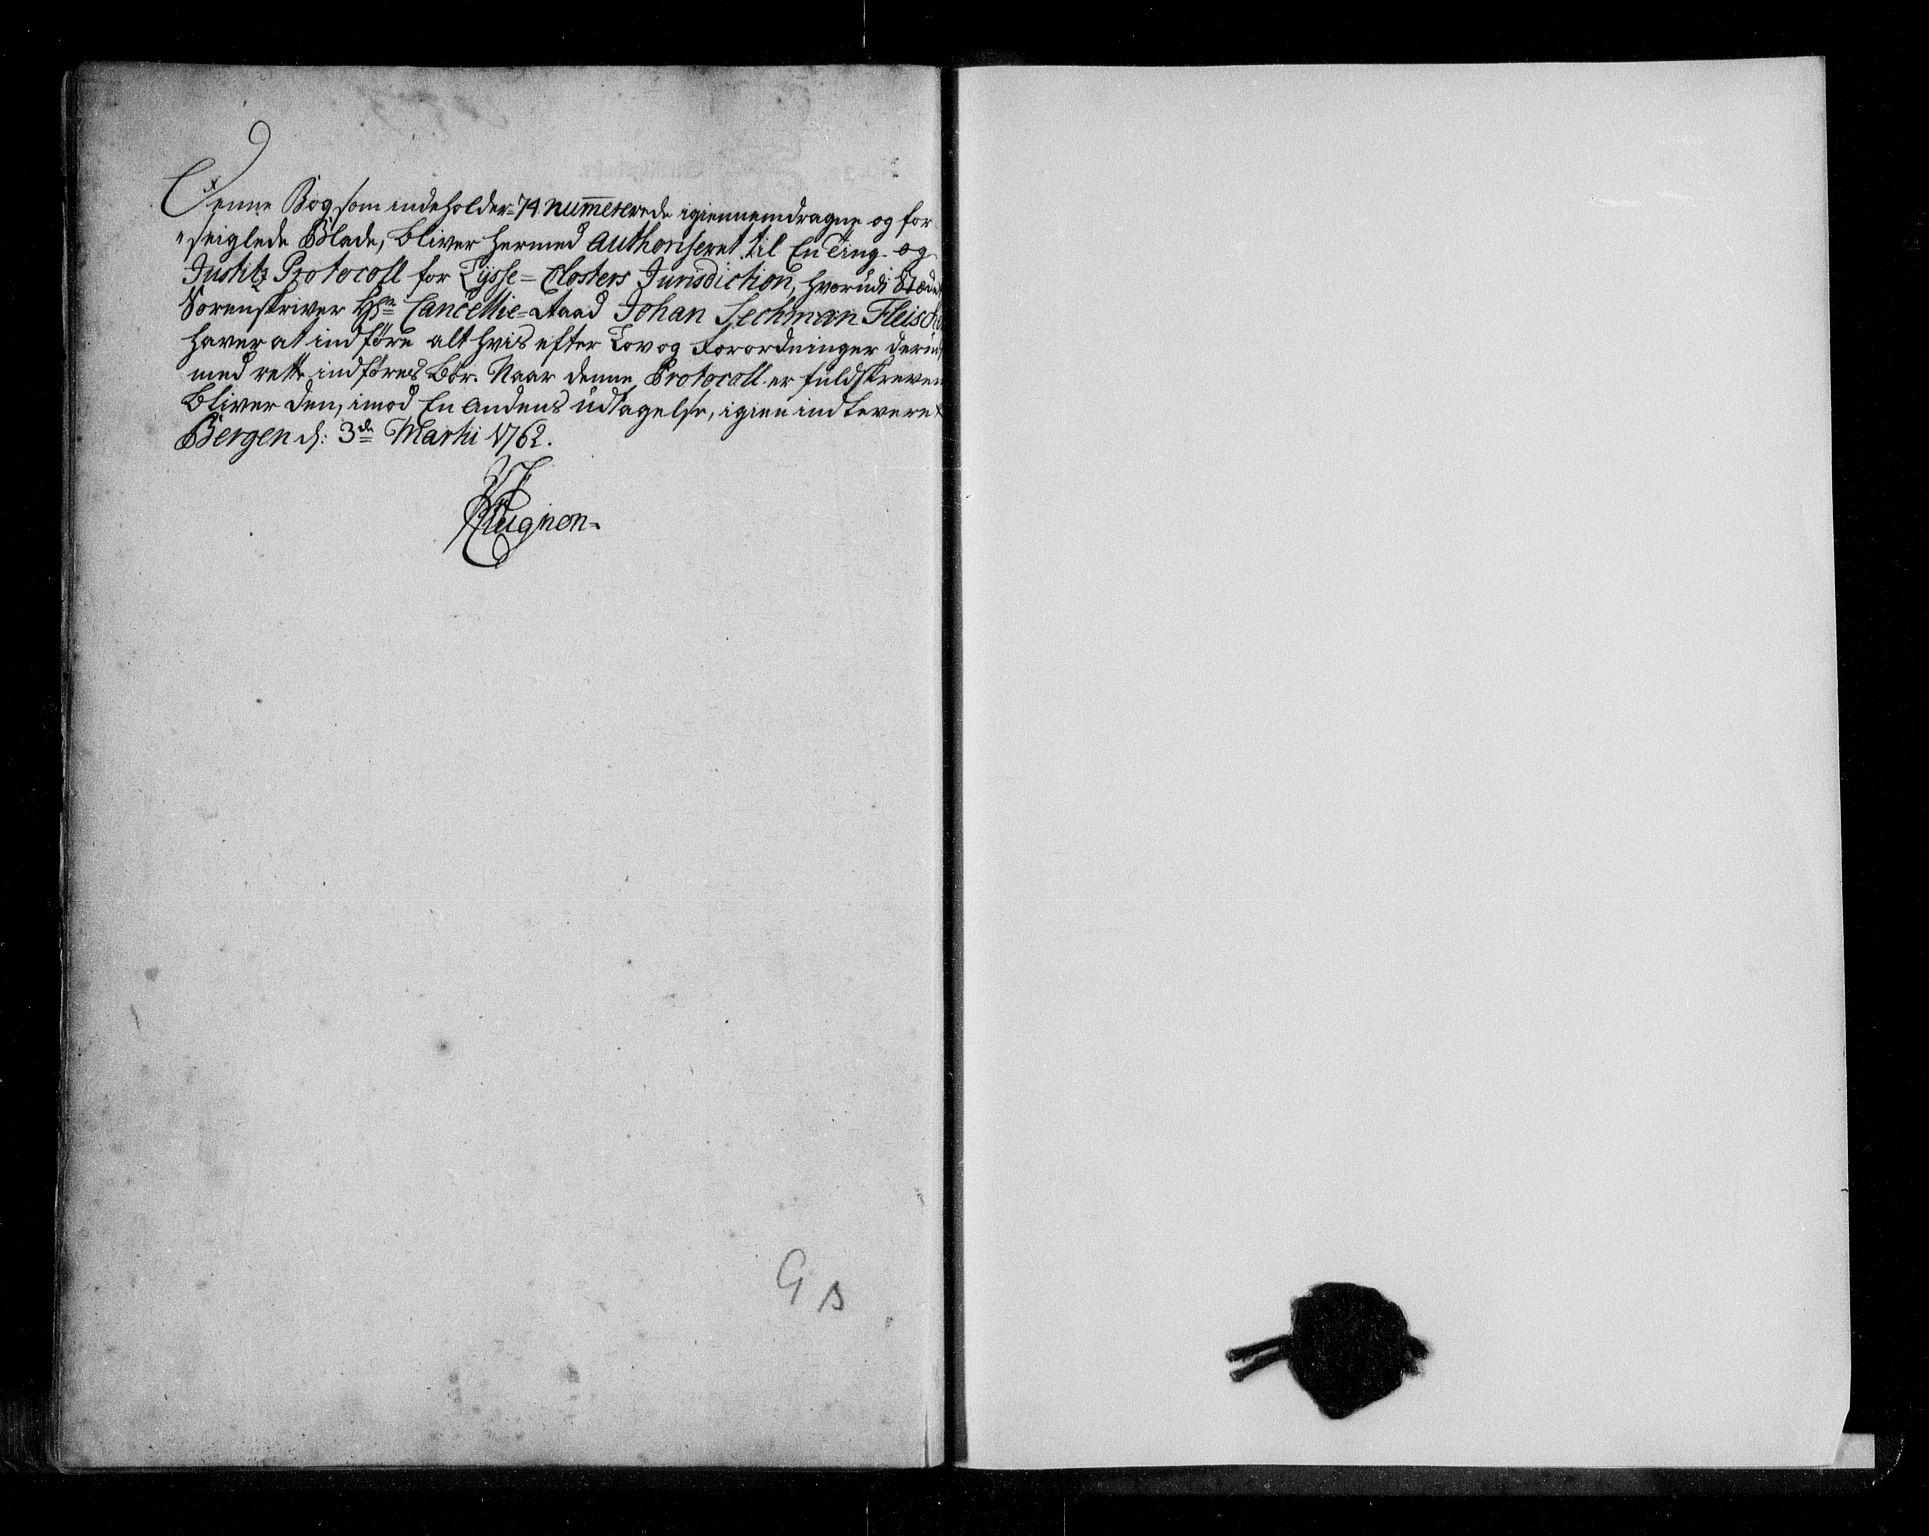 Denne Bog som indeholder 74 numererede igiennemdragne og for
seiglede Blade, bliver hermed Authoriseret til En Ting- og
Justitz Protocoll for Lysse=Closters Jurisdiction, hvorudi Stæde
Sorenskriver Hr Cancellie=Raad Johan Sechman Fleische
haver at indføre alt hvis efter Lov og Forordninger derind
med rette indføres bør. Naar denne Protocoll er fuldskreven
bliver den, imod En andens udtagelse, igien indleveret
Bergen d: 3de Martii 1762.
G B